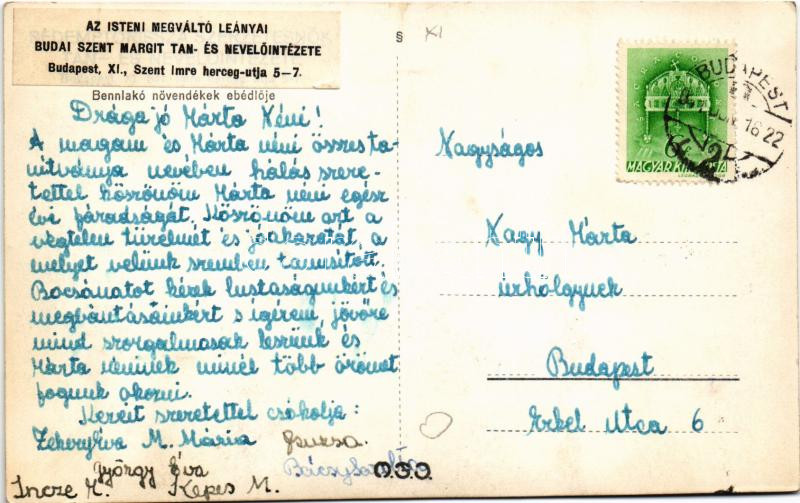 AZ ISTENI MEGVÁLTÓ LEÁNYAI
BUDAI SZENT MARGIT TAN- ÉS NEVELŐINTÉZETE
Budapest, XI., Szent Imre herceg-utja 5—7.
Bennlakó növendékek ebédlője
§
XI
Drága jó Márta Néni!
A magam és Márta néni összes ta-
nítványa nevében hálás szere-
tettel köszönöm Márta néni egész
évi fáradságát. Köszönöm azt a
végtelen türelmét és jóakaratát, a
melyet velünk szemben tanusított.
Bocsánatot kérek lustaságunkért és
megbántásainkért s igérem, jövőre
mind szorgalmasak leszünk és
Márta néninek minél több örömet
fogunk okozni.
Kezeit szeretettel csókolja:
M. Mária Zsuzsa.
György Éva
Incze M. Kepes M.
O.J.O.
BUDAPEST
16 22
MAGYAR KIR. POSTA
Nagyságos
Nagy Márta
úrhölgynek
Budapest
Erkel Utca 6